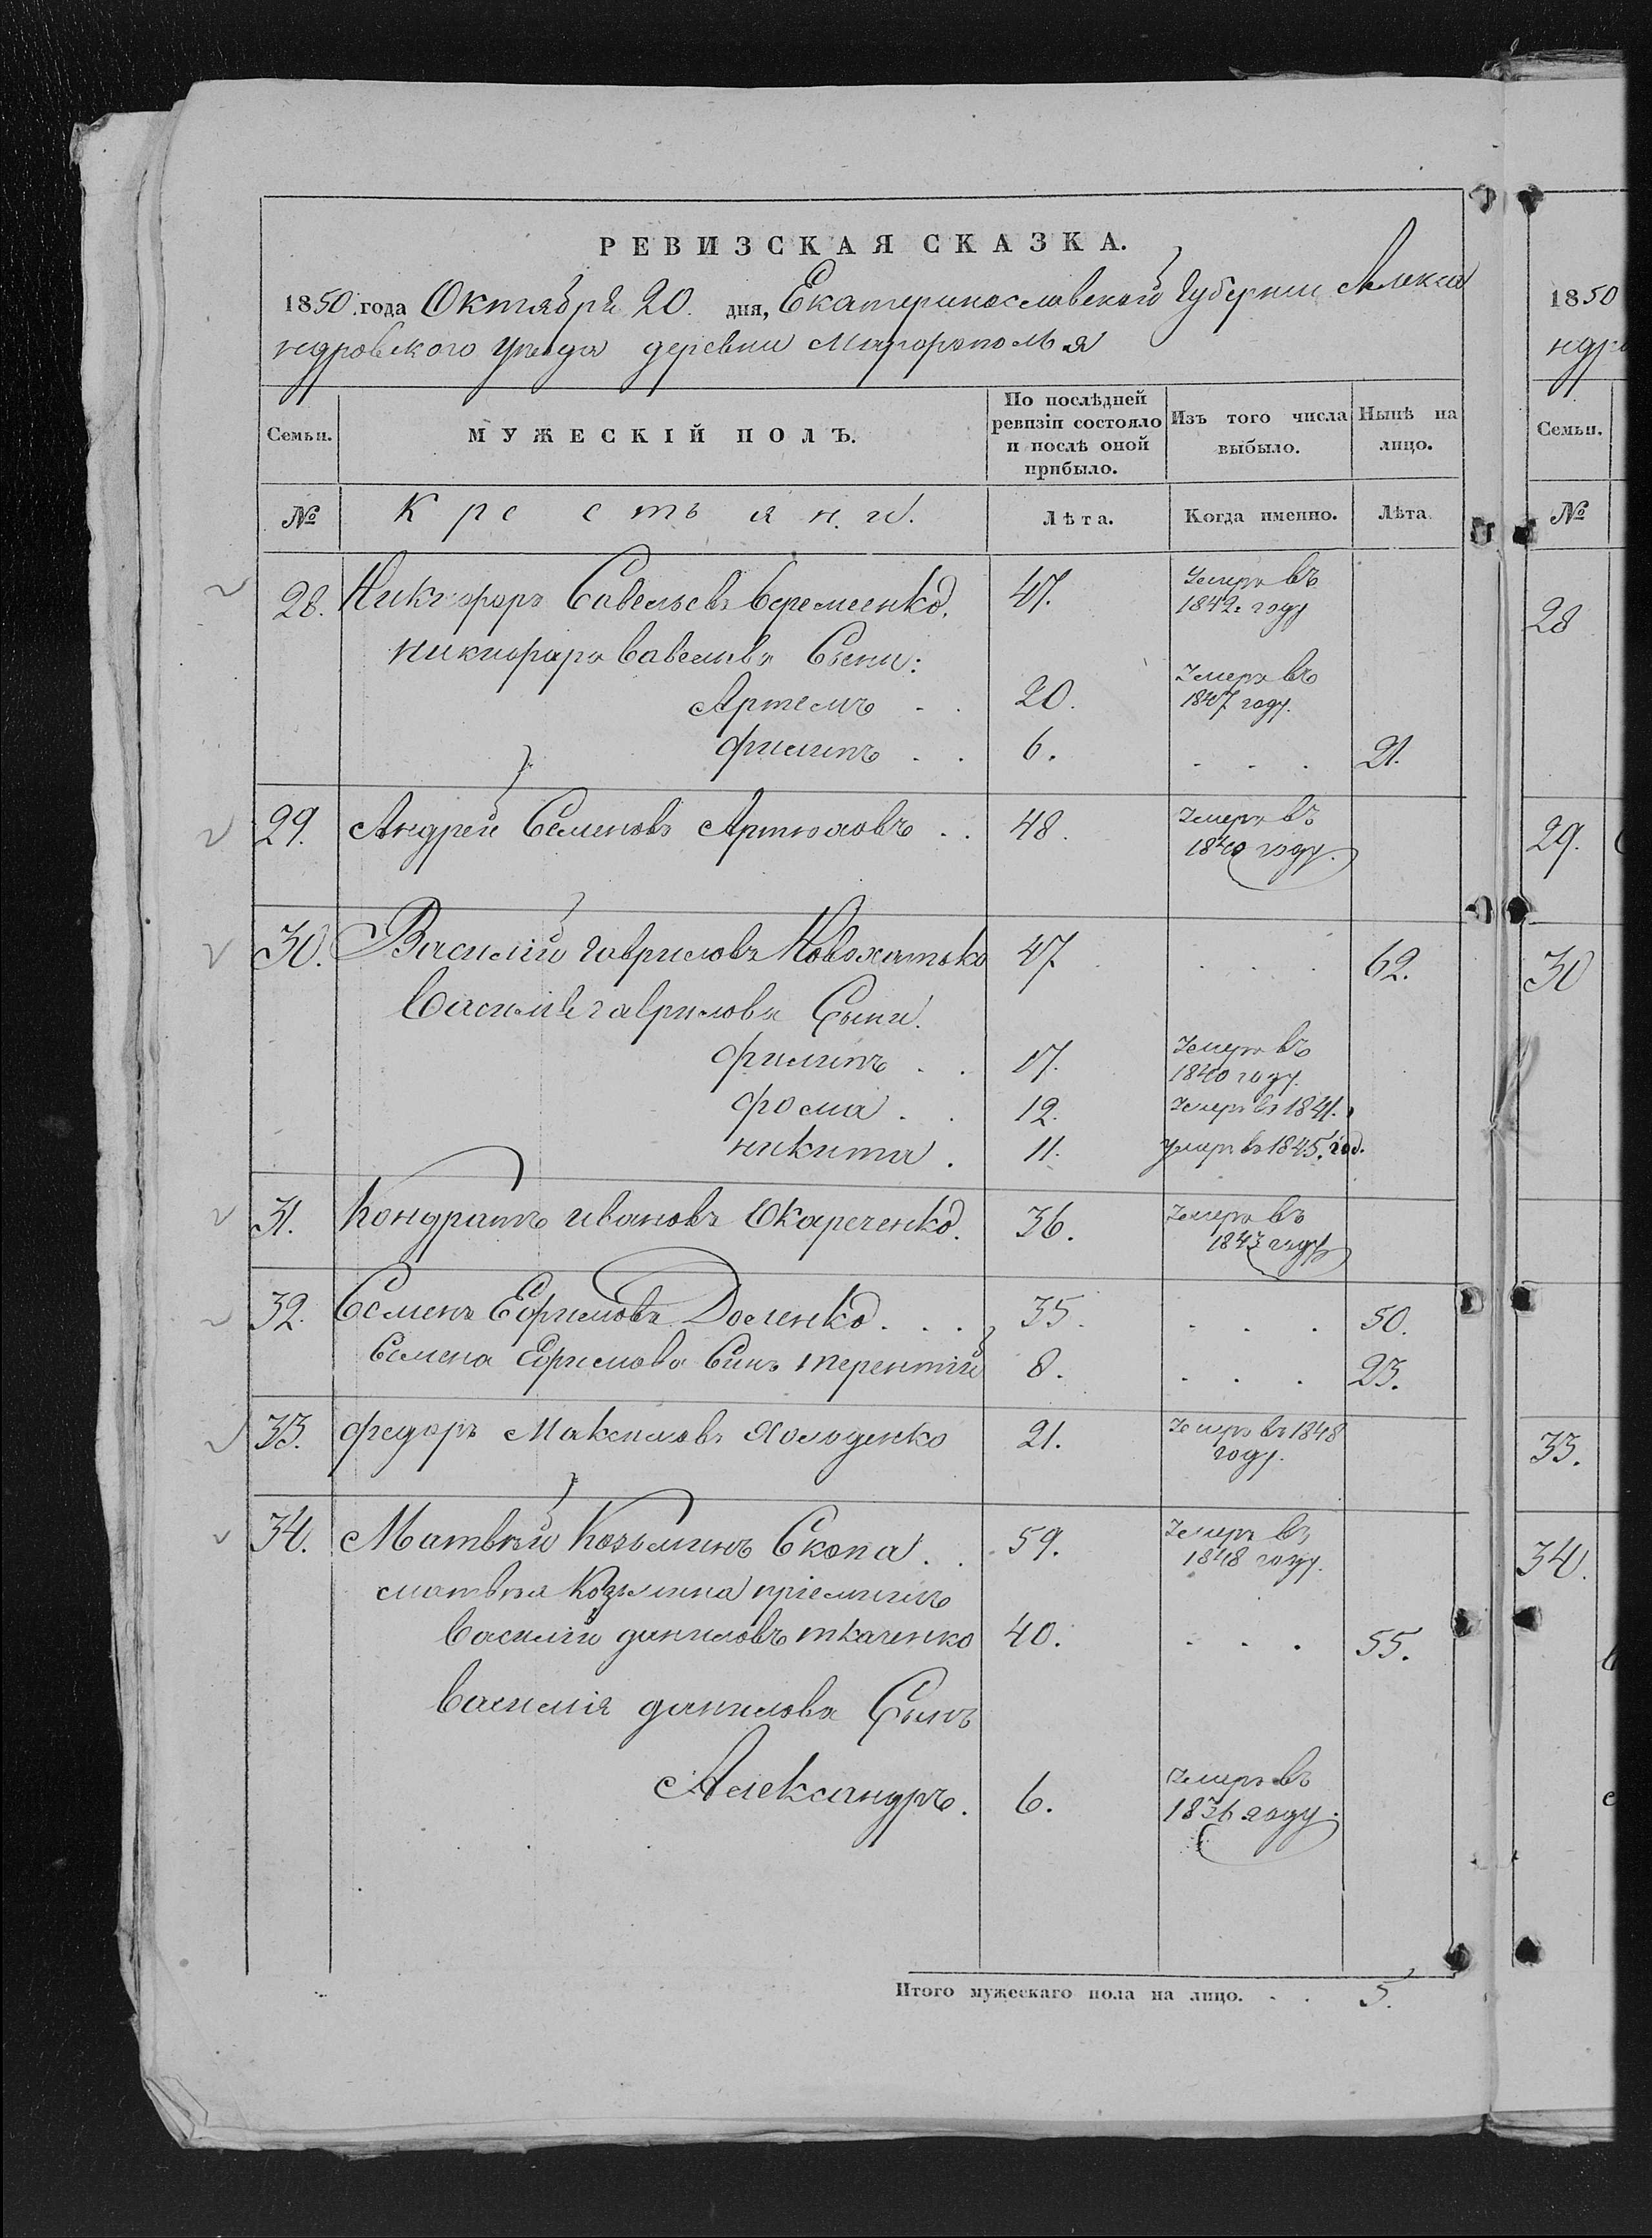 РЕВИЗСКАЯ СКАЗКА.
1850 года Октября 20. дня, Екатеринославской Губернии Алекса
ндровского уѣзда деревни
Семьи. МУЖЕСКІЙ ПОЛЪ. По послѣдней ревизіи состояло и послѣ оной прибыло. Изъ того числа выбыло. Нынѣ на лицо.
№ Крестьяни. Лѣта. Когда именно. Лѣта
28. Никифоръ Савельевъ Веремеенко. 47. Умеръ въ 1842. году
Никифора Савельева Сыни:
Артемъ . . 20. Умеръ въ 1847 году.
Филипъ . . 6. . . . 21.
29. Андрей Семеновъ Артюховъ . . 48. Умеръ въ 1840 году.
30. Василій Гавриловъ Новохатько 47 . . . . 62.
Василія Гаврилова Сыни.
Филипъ . . 17. Умеръ въ 1840 году.
Фома . . 12. Умеръ въ 1841.
Никита . 11. Умеръ въ 1845. год.
31. Кондратъ Ивановъ Скареченко. 36. Умеръ въ 1843 году
32. Семенъ Ефимовъ Доленко . . . 35. . . . 50.
Семена Ефимова Синъ Терентій 8. . . . 23.
33. Федоръ Максимовъ Холоденко 21. Умеръ въ 1848 году.
34. Матвѣй Козьминъ Скопа . . 59. Умеръ въ 1848 году.
Матвѣя Козьмина пріемишъ
Василій Даниловъ Ткаченко 40. . . . 55.
Василія Данилова Сынъ
Александръ. 6. Умеръ въ 1836 году.
Итого мужескаго пола на лицо. . . 5.
1850
ндро
Семьи.
№
28
29.
30
33.
34.